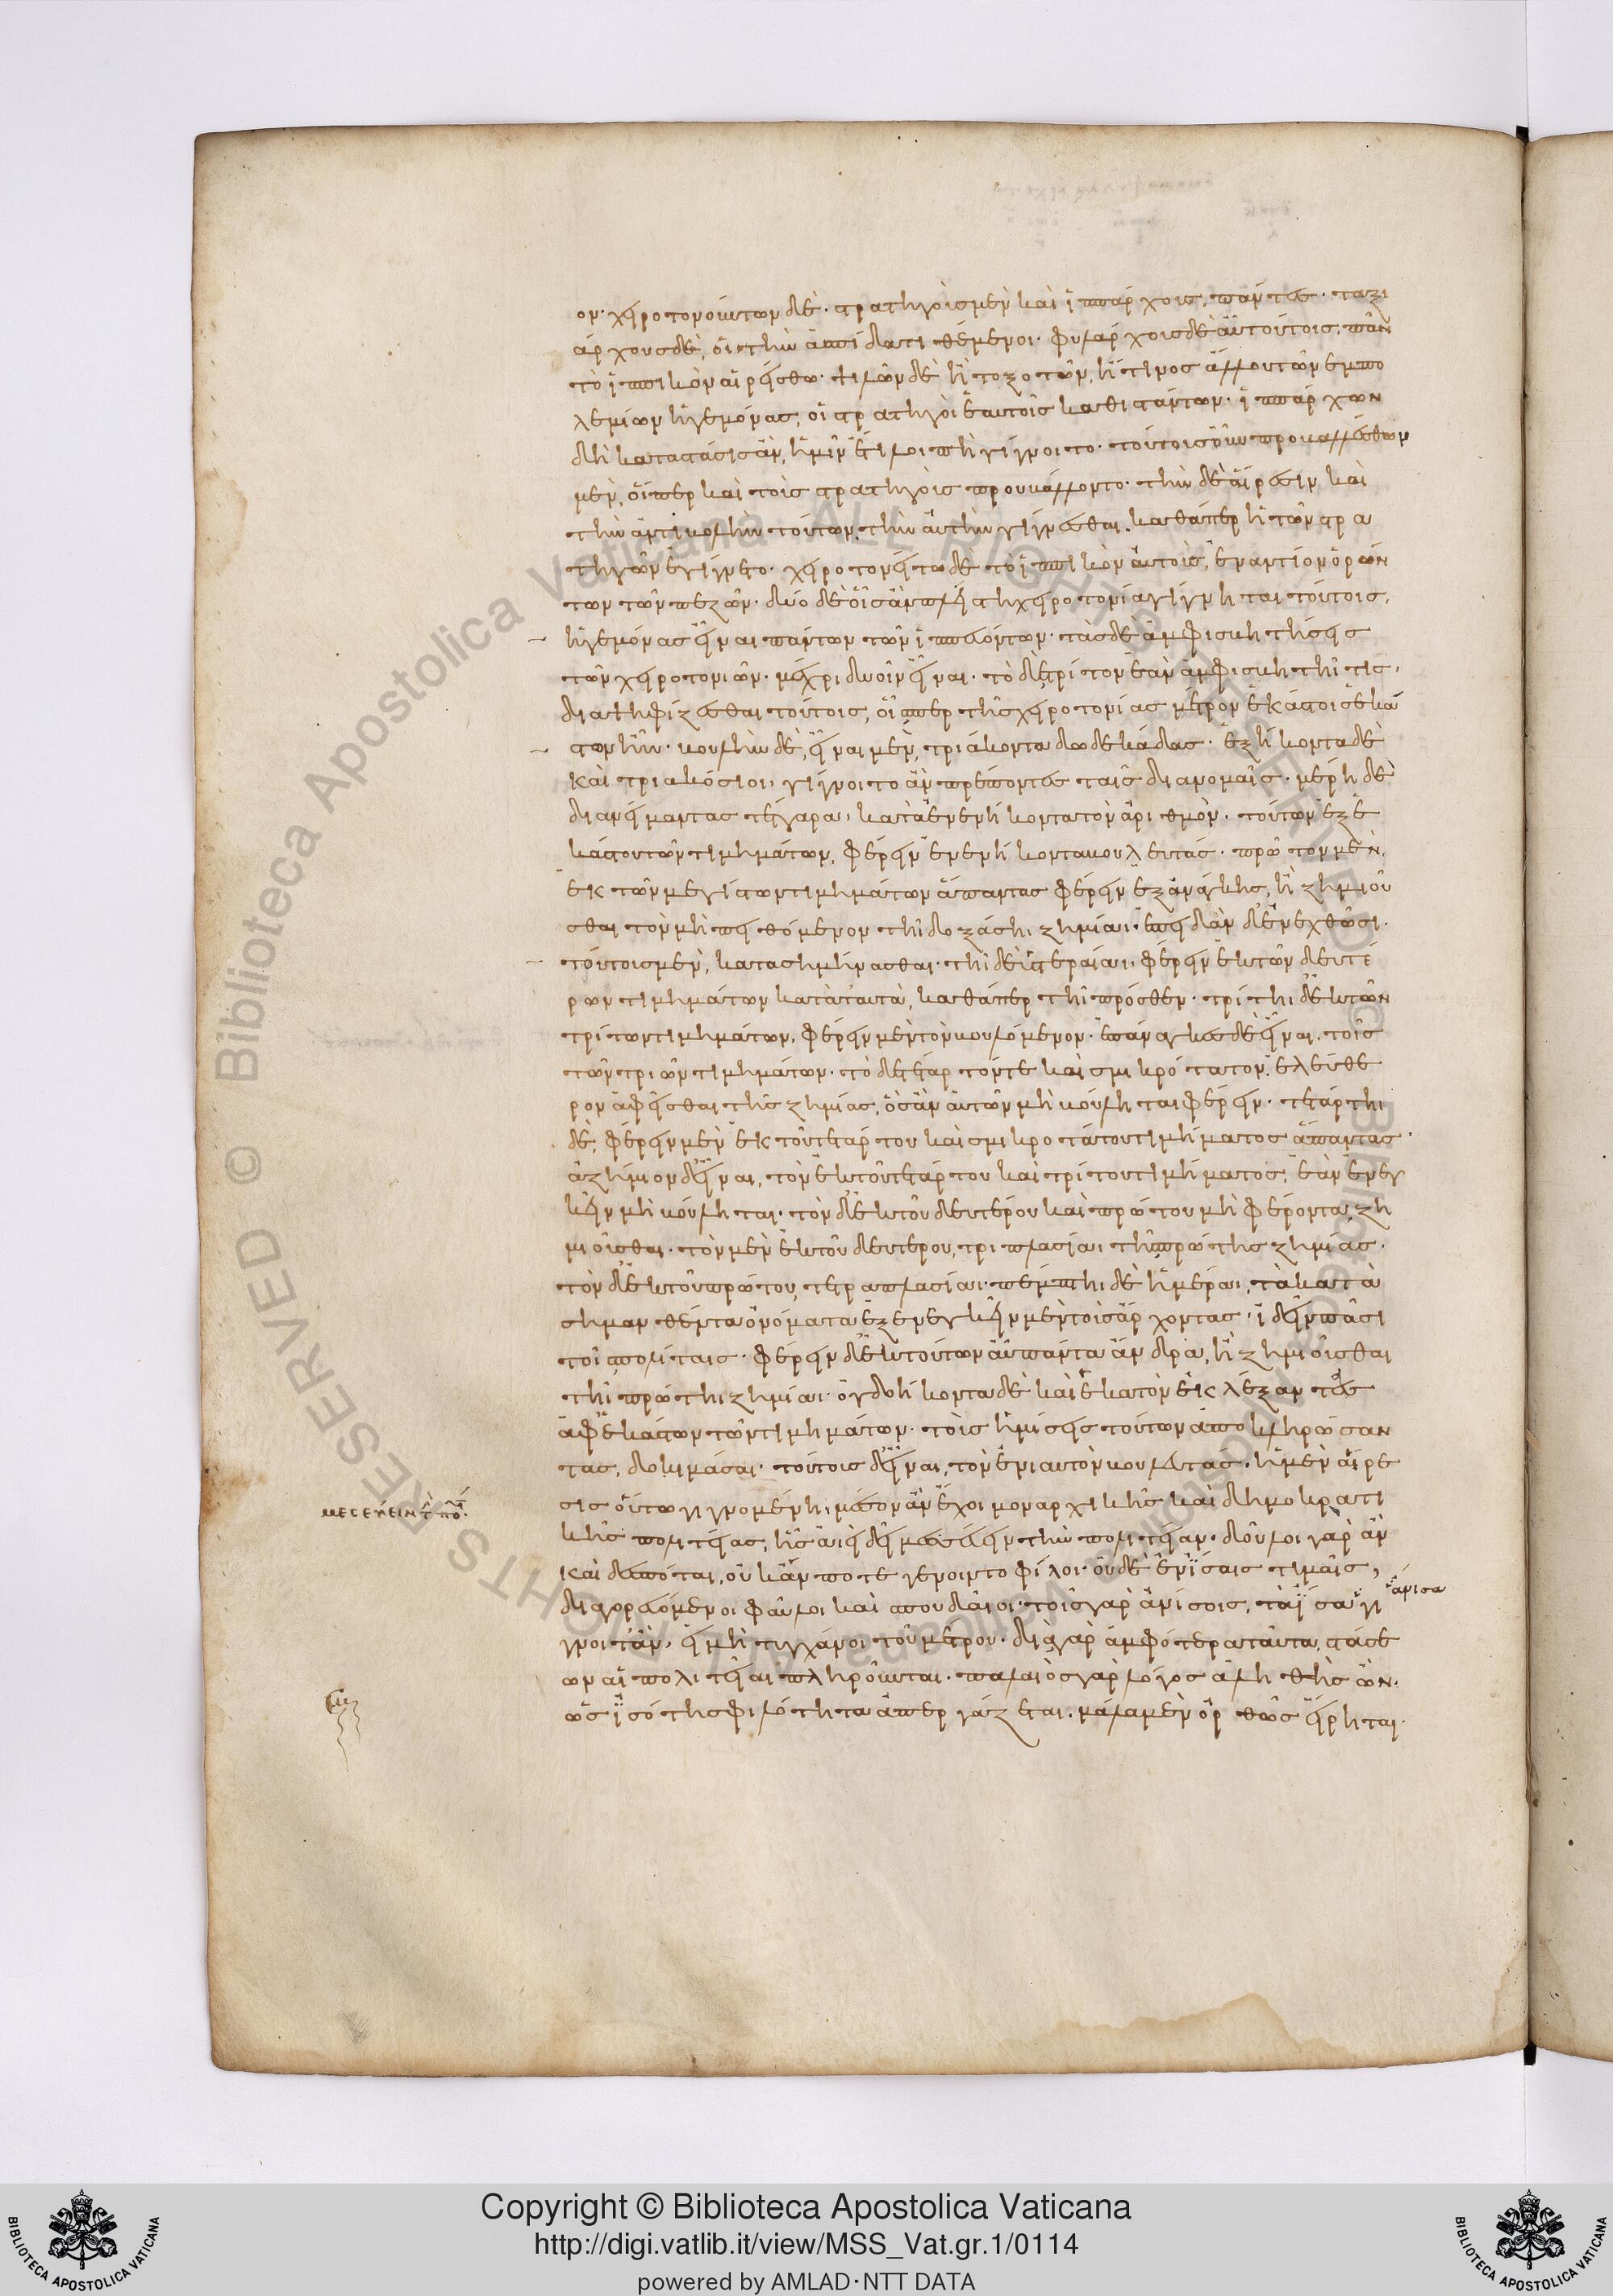 ον· χειροτονούντων δὲ· στρατηγοὺς μὲν καὶ ἱππάρχους, πάντες· ταξι
άρχους δὲ, οἱ τὴν ἀσπίδα τιθέμενοι· φυλάρχους δὲ αὖ τούτοις, πᾶν
τὸ ἱππικὸν αἱρείσθω· ψιλῶν δὲ ἢ τοξοτῶν, ἤ τινος ἄλλου τῶν ἐμπο
λεμίων ἡγεμόνας, οἱ στρατηγοὶ ἑαυτοῖς καθιστάντων· ἱππάρχων
δὴ κατάστασις ἂν, ἡμῖν ἔτι λοιπὴ γίγνοιτο· τούτους οὖν προβαλλέσθων
μὲν, οἵπερ καὶ τοὺς στρατηγοὺς προυβάλλοντο· τὴν δὲ αἵρεσιν καὶ
τὴν ἀντιβολὴν τούτων, τὴν αὐτὴν γίγνεσθαι, καθάπερ ἡ τῶν στρα
τηγῶν ἐγίγνετο· χειροτονείτω δὲ τὸ ἱππικὸν αὐτοὺς, ἐναντίον ὁρών
των τῶν πεζῶν· δύο δὲ οἷς ἂν πλείστη χειροτονία γίγνηται τούτους,
ἡγεμόνας εἶναι πάντων τῶν ἱππευόντων· τὰς δὲ ἀμφισβητήσεις
τῶν χειροτονιῶν· μέχρι δυοῖν εἶναι· τὸ δὲ τρίτον ἐὰν ἀμφισβητῆ τις,
διαψηφίζεσθαι τούτους, οἷσπερ τῆς χειροτονίας μέτρον ἑκάστοις ἑκά
στων ἦν· βουλὴν δὲ, εἶναι μὲν, τριάκοντα δωδεκάδας· ἑξήκοντα δὲ
καὶ τριακόσιοι, γίγνοιντο ἂν πρέποντες ταῖς διανομαῖς· μέρη δὲ
διανείμαντας τέτταρα, κατὰ ἐνενήκοντα τὸν ἀριθμὸν· τούτων ἐξ ἑ
κάστου τῶν τιμημάτων, φέρειν ἐνενήκοντα βουλευτάς· πρῶτον μὲν,
ἐκ τῶν μεγίστων τιμημάτων ἅπαντας φέρειν ἐξ ἀνάγκης, ἢ ζημιοῦ
σθαι τὸν μὴ πειθόμενον τῆι δοξάσηι ζημίαι· ἐπειδὰν δ' ἐνεχθῶσι,
τούτους μὲν, κατασημήνασθαι· τῆι δὲ ὑστεραίαι, φέρειν ἐκ τῶν δευτέ
ρων τιμημάτων κατὰ ταυτὰ, καθάπερ τῆι πρόσθεν· τρίτηι δ' ἐκ τῶν
τρίτων τιμημάτων, φέρειν μὲν τὸν βουλόμενον· ἐπάναγκες δὲ εἶναι, τοῖς
τῶν τριῶν τιμημάτων· τὸ δὲ τέταρτόν τε καὶ σμικρότατον, ἐλεύθε
ρον ἀφεῖσθαι τῆς ζημίας, ὃς ἂν αὐτῶν μὴ βούληται φέρειν· τετάρτηι
δὲ, φέρειν μὲν ἐκ τοῦ τετάρτου καὶ σμικροτάτου τιμήματος ἅπαντας·
ἀζήμιον δ' εἶναι, τὸν ἐκ τοῦ τετάρτου καὶ τρίτου τιμήματος, ἐὰν ἐνεγ
κεῖν μὴ βούληται· τὸν δ' ἐκ τοῦ δευτέρου καὶ πρώτου μὴ φέροντα, ζη
μιοῦσθαι· τὸν μὲν ἐκ τοῦ δευτέρου, τριπλασίαι τῆς πρώτης ζημίας·
τὸν δ' ἐκ τοῦ πρώτου, τετραπλασίαι· πέμπτηι δὲ ἡμέραι, τὰ κατα
σημανθέντα ὀνόματα ἐξενεγκεῖν μὲν τοὺς ἄρχοντας, ἰδεῖν πᾶσι
τοῖς πολίταις· φέρειν δ' ἐκ τούτων αὖ πάντα ἄνδρα, ἢ ζημιοῦσθαι
τῆι πρώτηι ζημίαι· ὀγδοήκοντα δὲ καὶ ἑκατὸν ἐκλέξαντας
ἀφ' ἑκάστων τῶν τιμημάτων· τοὺς ἡμίσεις τούτων ἀποκληρώσαν
τας, δοκιμάσαι· τούτους δ' εἶναι, τὸν ἐνιαυτὸν βουλευτάς· ἡ μὲν αἵρε
σις οὕτω γιγνομένη, μέσον ἂν ἔχοι μοναρχικῆς καὶ δημοκρατι
κῆς πολιτείας, ἧς ἀεὶ δεῖ μεσεύειν τὴν πολιτείαν· δοῦλοι γὰρ ἂν
καὶ δεσπόται, οὐκ ἄν ποτε γένοιντο φίλοι· οὐδὲ ἐν ἴσαις τιμαῖς,
διαγορευόμενοι φαῦλοι καὶ σπουδαῖοι· τοῖς γὰρ ἀνίσοις, τὰ ἴσα γί
ἄνισα
γνοιτ' ἂν, εἰ μὴ τυγχάνοι τοῦ μέτρου· διὰ γὰρ ἀμφότερα ταῦτα, στάσε
ων αἱ πολιτεῖαι πληροῦνται· παλαιὸς γὰρ λόγος ἀληθὴς ὢν,
ὡς ἰσότης φιλότητα ἀπεργάζεται, μάλα μὲν ὀρθῶς εἴρηται·
Biblioteca Apostolica Vaticana
ALL RIGHTS RESERVED ©
Copyright © Biblioteca Apostolica Vaticana
http://digi.vatlib.it/view/MSS_Vat.gr.1/0114
powered by AMLAD·NTT DATA
BIBLIOTECA APOSTOLICA VATICANA
BIBLIOTECA APOSTOLICA VATICANA